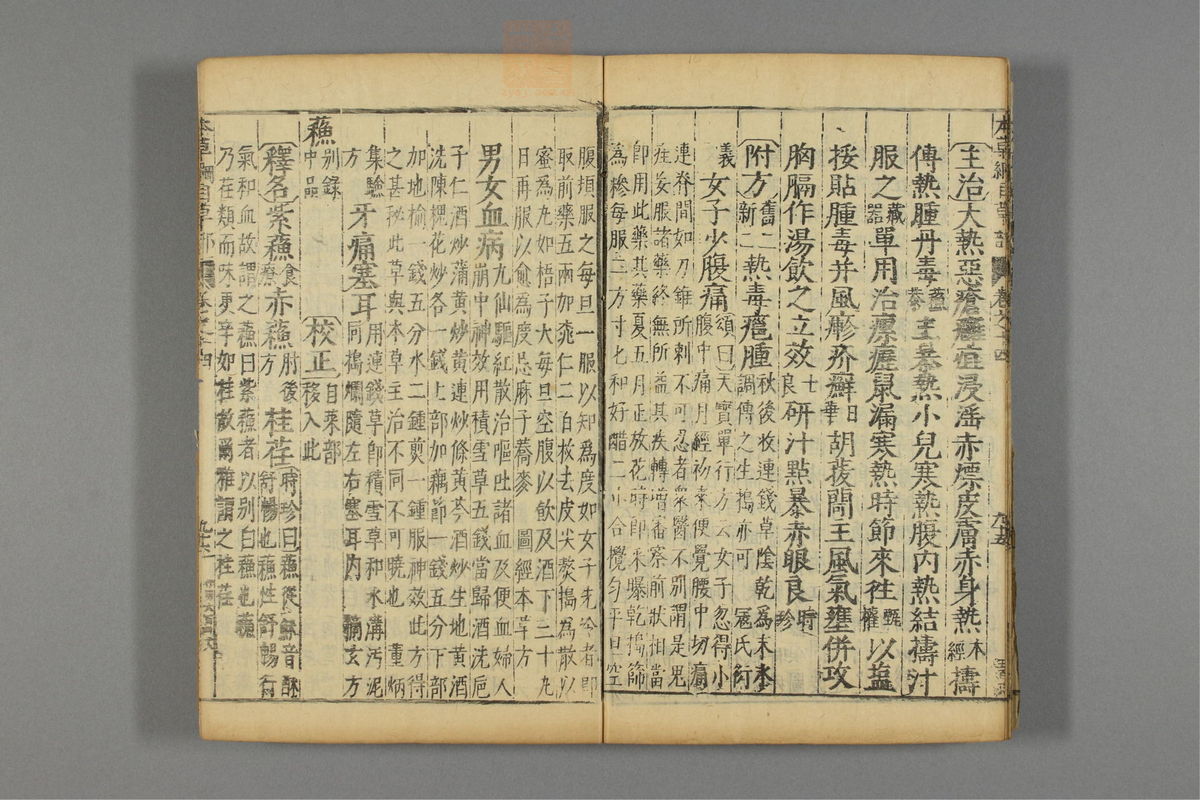 主治大熱惡瘡癰疽浸淫赤熛皮膚赤身熱本經擣
傅熱腫丹毒蘇恭主暴熱小兒寒熱腹內熱結擣汁
服之藏器單用治瘰癧鼠漏寒熱時節來往甄權以鹽
挼貼腫毒并風疹疥癬日華胡菝䕞主風氣壅併攻
胸膈作湯飲之立效士良研汁點暴赤眼良時珍
附方舊二新二熱毒癰腫秋後收連錢草陰乾爲末水調傅之生搗亦可寇氏衍
義女子少腹痛頌曰天寶單行方云女子忽得小腹中痛月經初來便覺腰中切痛
連脊間如刀錐所刺不可忍者衆醫不別謂是鬼
疰妄服諸藥終無所益其疾轉增審察前狀相當
卽用此藥其藥夏五月正放花時卽采曝乾搗篩
爲糝每服二方寸匕和好醋二小合攪勻平旦空
腹頓服之每旦一服以知爲度如女子先冷者卽
取前藥五兩加桃仁二百枚去皮尖熬搗爲散以
蜜爲丸如梧子大每旦空腹以飲及酒下三十丸
日再服以愈爲度忌麻子蕎麥 圖經本草方
男女血病九仙驅紅散治嘔吐諸血及便血婦人崩中神效用積雪草五錢當歸酒洗巵
子仁酒炒蒲黃炒黃連炒條黃芩酒炒生地黃酒
洗陳槐花炒各一錢上部加藕節一錢五分下部
加地榆一錢五分水二鍾煎一鍾服神效此方得
之甚秘此草與本草主治不同不可曉也 董炳
集驗方牙痛塞耳用連錢草卽積雪草和水溝污泥同搗爛隨左右塞耳內 摘玄方
蘇別錄中品 校正自菜部移入此
釋名紫蘇食療赤蘇肘後方桂荏時珍曰蘇從穌音酥舒暢也蘇性舒暢行
氣和血故謂之蘇曰紫蘇者以别白蘇也蘇
乃荏類而味更辛如桂故爾雅謂之桂荏